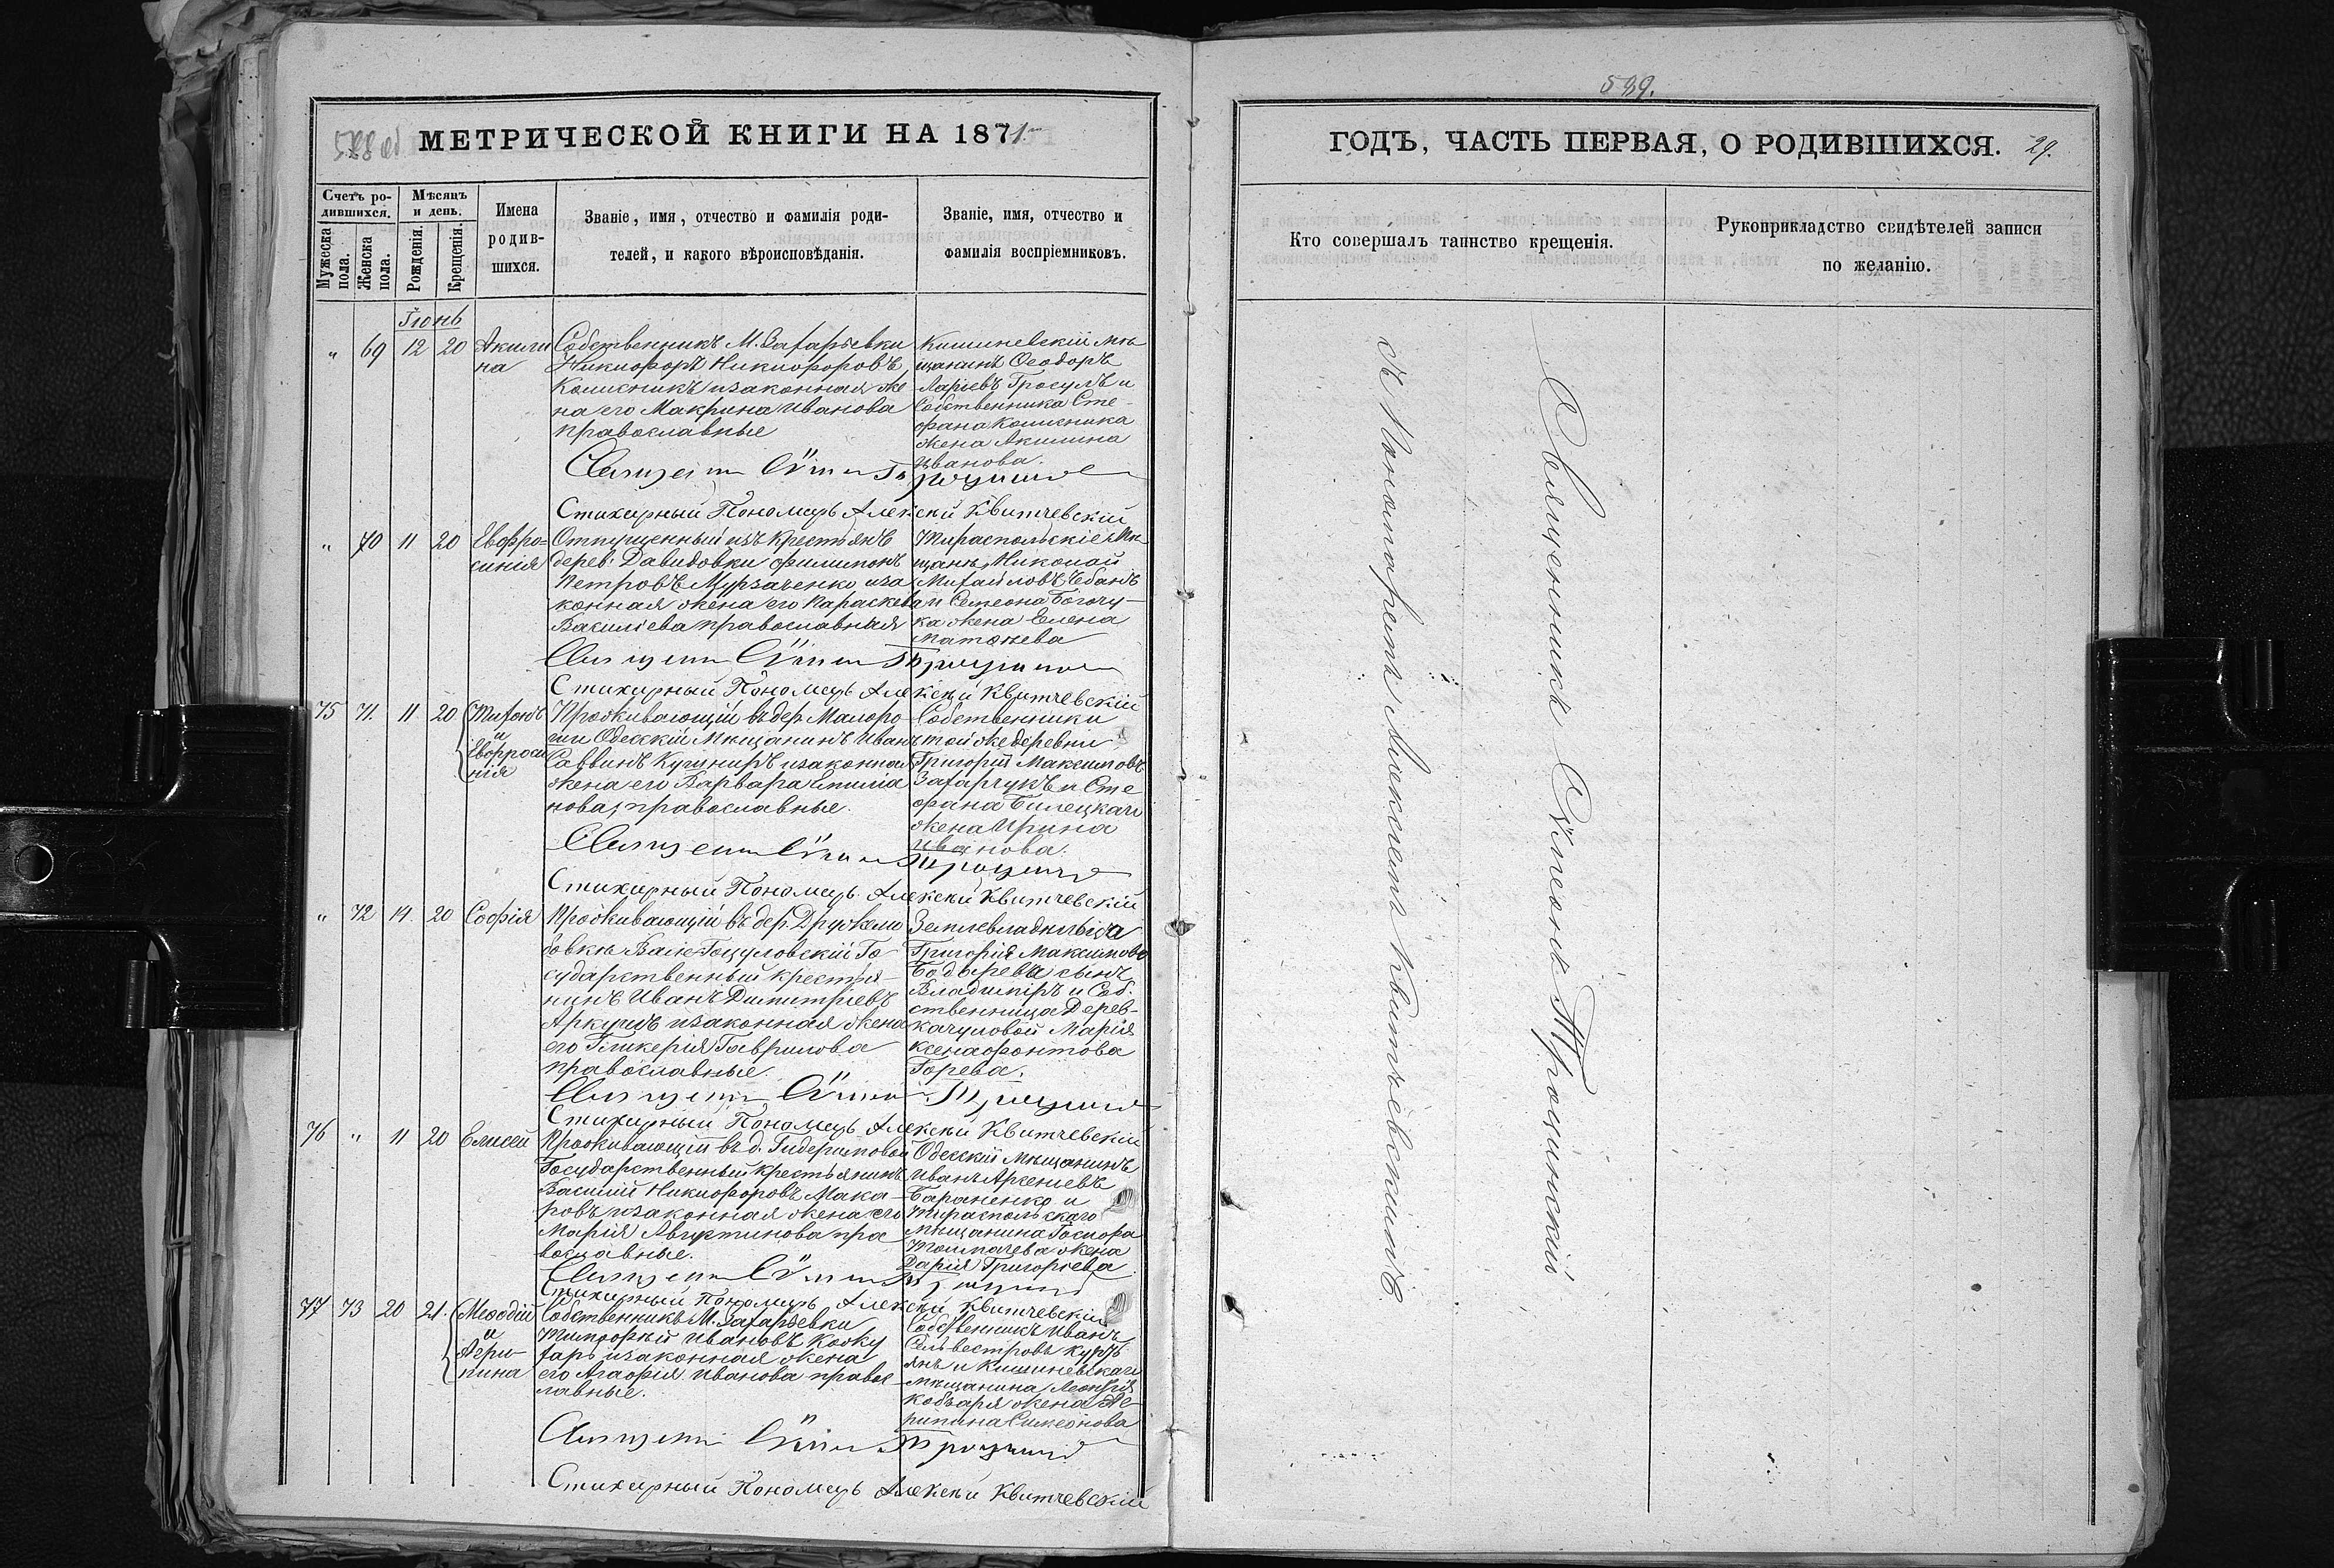 588 об
МЕТРИЧЕСКОЙ КНИГИ НА 1871
Счетъ родившихся.
Мѣсяцъ и день.
Мужеска пола.
Женска пола.
Рожденія.
Крещенія.
Имена родившихся.
Званіе, имя, отчество и фамилія родителей, и какого вѣроисповѣданія.
Званіе, имя, отчество и фамилія воспріемниковъ.
Іюнь
„ 69 12 20 Акилина
Собственникъ М. Захарьевки
Никифоръ Никифоровъ
и законная же
на его Макрина Иванова
православные
Кишиневскій мѣ
щанинъ Ѳеодоръ
Ларіевъ Гросулъ и
Собственника Сте
фана
жена Акилина
Иванова.
Священникъ Сѵмеонъ Троцинскій
Стихарный Пономарь Алексѣй Квитчевскій
„ 70 11 20 Евфро=
синія
Отпущенный изъ крестьянъ
дерев. Давидовки Филимонъ
Петровъ Мурзаченко и за
конная жена его Параскева
Василіева православная
Тираспольскіе Мѣ
щане, Николай
Михайловъ Чебанъ
и Семеона Богачу
ка жена Елена
Матѳѣева
Священникъ Сѵмеонъ Троцинскій
Стихарный Пономарь Алексѣй Квитчевскій
75 71. 11 20 Тихонъ
и
Евфроси
нія
Проживающій въ дер. Малоро
ши Одесскій Мѣщанинъ Иванъ
Саввинъ Кушниръ и законная
жена его Варвара Епифа
нова, православные.
Собственники
той же деревни
Григорій Максимовъ
Захарчукъ и Сте
фана Билецкаго
жена Ирина
Иванова.
Священникъ Сѵмеонъ Троцинскій
Стихарный Пономарь Алексѣй Квитчевскій
„ 72 14. 20 Софія
Проживающій въ дер. Дружелю
бовкѣ Вале-Гоцуловскій Го
сударственный крестья
нинъ Иванъ Димитріевъ
Аркушъ и законная жена
его Гликерія Гаврилова
православные.
Землевладѣльца
Григорія Максимова
Бодарева сынъ
Владиміръ и Соб.
ственница Дерев
качуловой Марія
Ксенофонтова
Горева.
Священникъ Сѵмеонъ Троцинскій
Стихарный Пономарь Алексѣй Квитчевскій
76 „ 11 20 Елисей
Проживающій въ д. Гидеримовой
Государственный крестьянинъ
Василій Никифоровъ Мака
ровъ и законная жена его
Марія Августинова пра
вославные.
Одесскій Мѣщанинъ
Иванъ Арсеніевъ
Бараненко и
Тираспольскаго
Мѣщанина
Толмачева жена
Дарія Григорьева
Священникъ Сѵмеонъ Троцинскій
Стихарный Пономарь Алексѣй Квитчевскій
77 73 20 21. Меѳодій
и
Агри-
пина
Собственникъ М. Захарьевки
Тимофѣй Ивановъ Кожу
харь и законная жена
его Агафія Иванова правос
лавные.
Собственникъ Иванъ
Сельвестровъ Курть
янъ и Кишиневскаго
Мѣщанина Леонтія
Кобзаря жена Аг
рипина Симеонова
Священникъ Сѵмеонъ Троцинскій
Стихарный Пономарь Алексѣй Квитчевскій
589.
ГОДЪ, ЧАСТЬ ПЕРВАЯ, О РОДИВШИХСЯ. 29.
Кто совершалъ таинство крещенія.
Рукоприкладство свидѣтелей записи
по желанію.
Священникъ Сѵмеонъ Троцинскій
съ Пономаремъ Алексѣемъ Квитчевскимъ